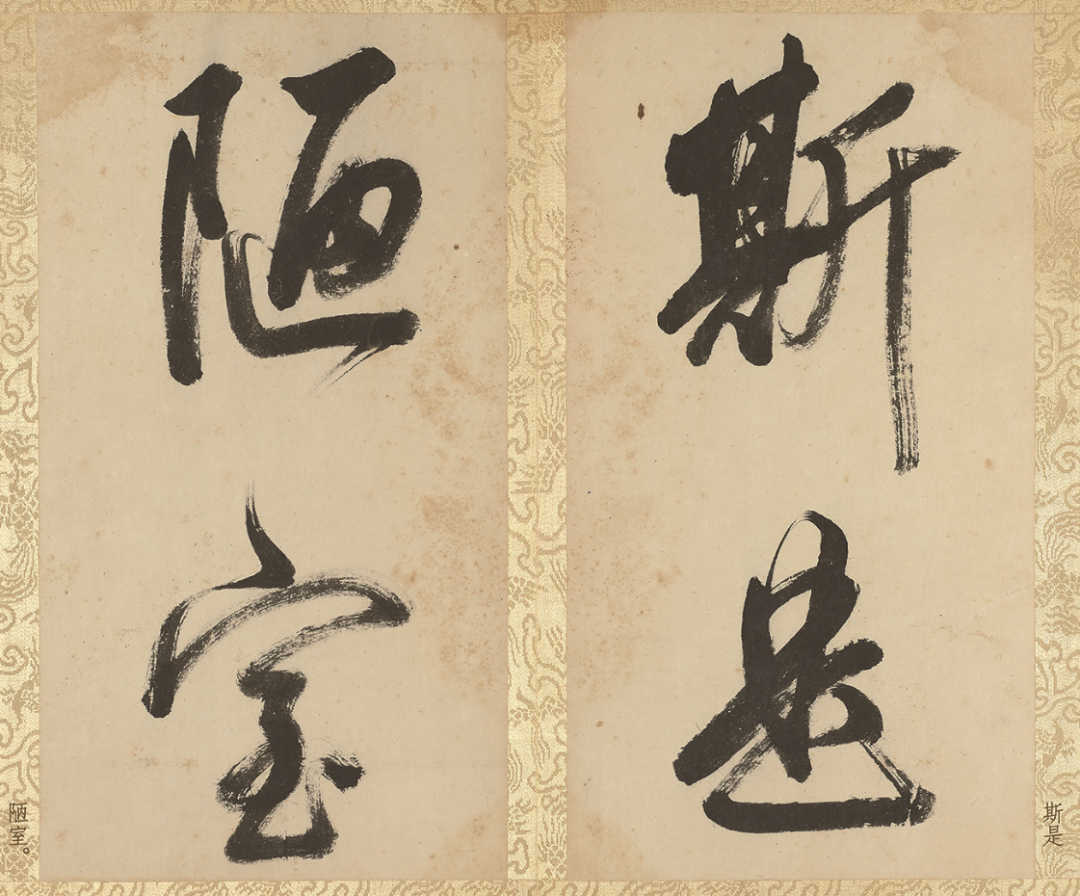 斯是
陋室
斯是
陋室。